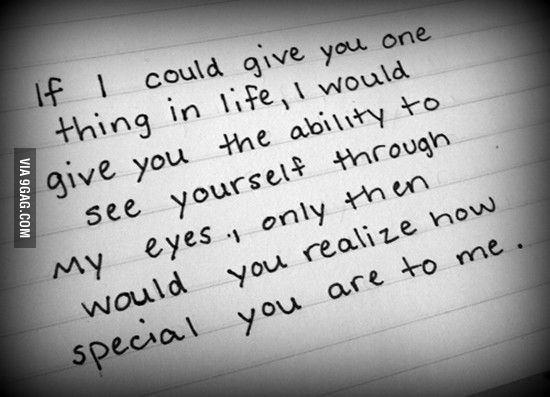 If I could give you one
thing in life, I would
give you the ability to
see yourself through
my eyes., only then
would you realize how
special you are to me.
VIA 9GAG.COM